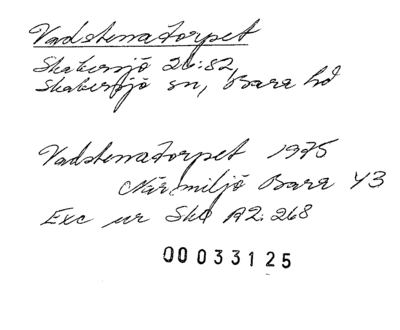 Vadstenatorpet
Skabersjö 26:52,
Skabersjö sn, Bara hd
Vadstenatorpet 1975
Närmiljö Bara 43
Exc ur Skå A2:268
00033125